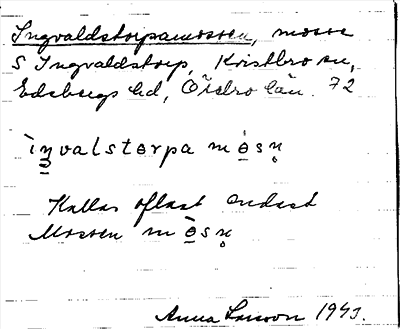 Ingvaldstorpamossen, mosse
S Ingvaldstorp, Kvistbro sn,
Edsbergs hd, Örebro län. 72
ìŋvalstɵrpa mɵ̀sn̥
Kallas oftast endast
Mossen mɵ̀sn̥
Anna Larsson 1943.